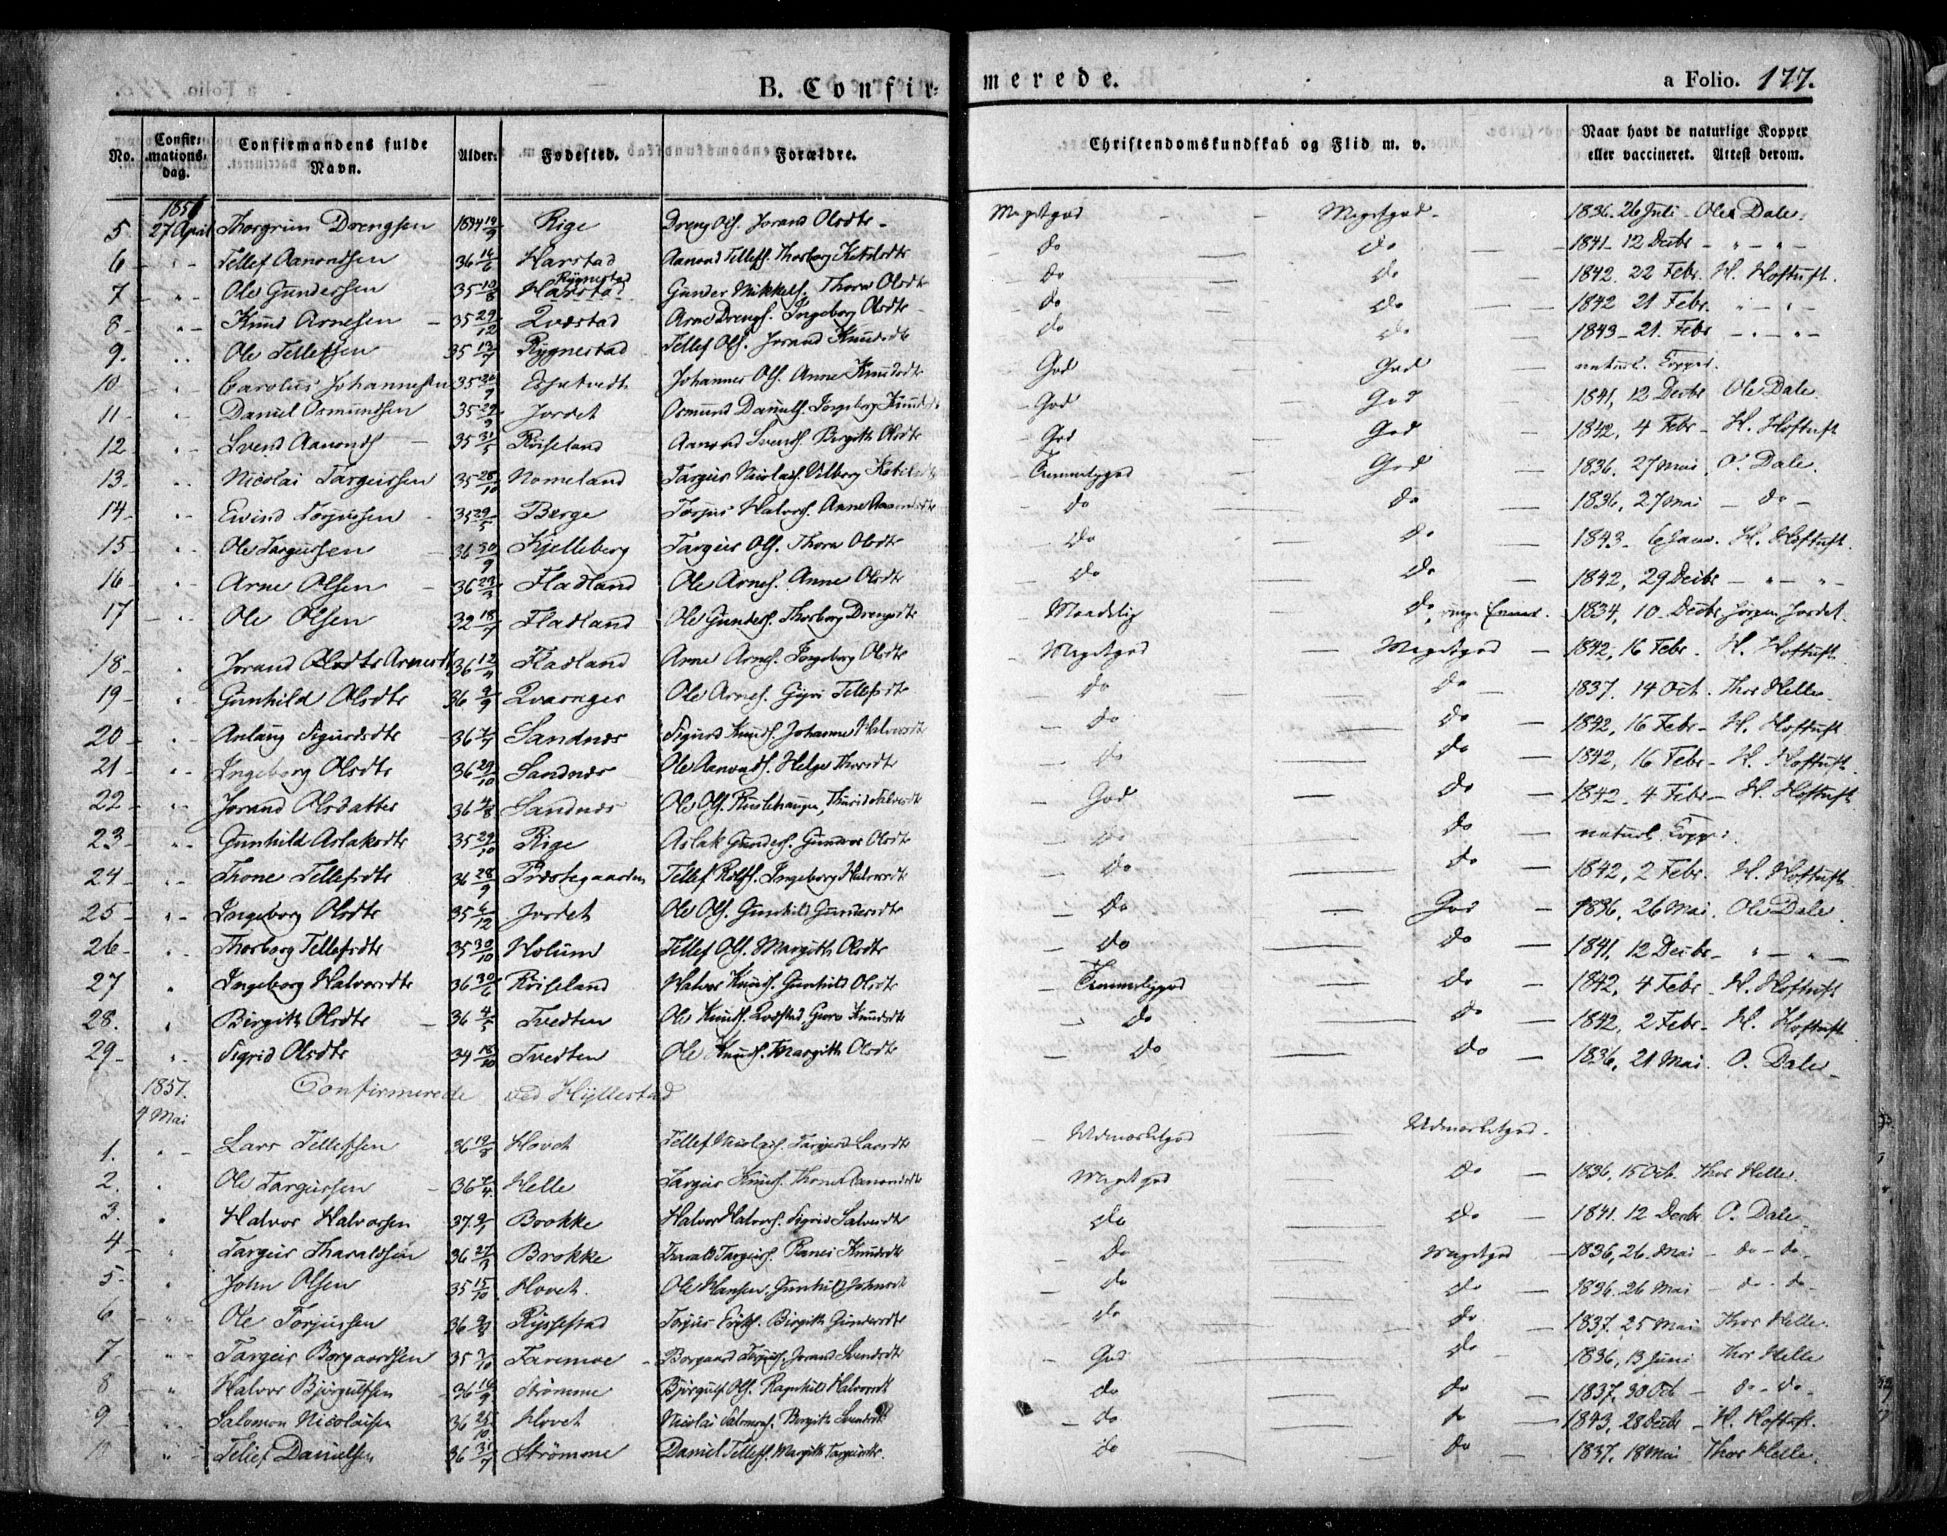 B. Confirmerede. a Folio. 177.
No. Confirmationsdag. Confirmandens fulde Navn. Alder. Fødested. Forældre. Christendomskundskab og Flid m. v. Naar havt de naturlige Kopper eller vaccineret. Attest derom.
1851
5. 27 April Thorgrim Drengsen 1834 19/9 Rige Dreng Ols. Jorand Olsdtr - Megetgod - Megetgod - 1836. 26 Juli - Ole Dale.
6 - " - Tellef Aanondsen 36 16/6 Harstad Aanond Tellefs. Thorborg - do - do - 1841. 12 Decbr - " - " -
7 - " - Ole Gundersen 35 10/8 Harstad Rygnestad Gunder Mikkels. Thora Olsdtr - do - do - 1842. 22 Febr. H. Hoftuft.
8 - " - Knud Arnesen - 35 29/12 Qvæstad Arne Drengs. Ingeborg Olsdtr - do - do - 1842 21 Febr. " - " -
9. " - Ole Tellefsen 35 Rygnestad Tellef Ols. Jorand Knudsdtr do - do - 1843 - 21. Febr - " - " -
10 - " - Carolus Johannesen 35 Johannes Ols. Anne Knudsdtr - God - God - naturl. Kopper.
11 - " - Daniel Osmundsen 35 29/9 Jordet Osmund Daniels. Ingeborg - God - God - 1841, 12 Decbr Ole Dale
12 " - Svend Aanonds - 35 31/5 Røiseland Aanond Svends. Birgith Olsdtr - God - God - 1842, 4 Febr - H. Hoftuft
13 - " - Nicolai Targeirsen 35 28/10 Nomeland Targeir Nicolais. - Temmeliggod God - 1836. 27 Mai, O. Dale.
14 - " - Eivind Torjussen - 35 29/5 Berge Torjus Halvors. Anne - do - do - 1836, 27 Mai - do -
15 - " - Ole Targeirsen - 36 30/9 Kjelleberg Targeir Ols. Thora Olsdtr - do - do - 1843 - 6 Janr. H. Hoftuft.
16 - " - Arne Olsen - 36 23/3 Fladland Ole Arnes. Anne Olsdtr - do - do - 1842, 29 Decbr - " - " -
17 - " - Ole Olsen 32 18/7 Fladland Ole Gunders. Thorborg Drengsdtr - Maadelig do, 1834, 10 Decbr Jørgen Jordet.
18 - " Jorand Olsdtr Arnesdtr 36 Fladland Arne Arnes. Ingeborg Olsdtr - Megetgod - Megetgod - 1842, 16 Febr. H. Hoftuft
19 - " Gunhild Olsdtr 36 2/9 Ole Arnes. Gyri Tellefsdtr - do - do - 1837. 14 Oct. Thor Helle
20 - " Anlaug Sigurdsdtr - 36 Sandnes Sigurd Knuds. Johanne Halvorsdtr - do - do 1842, 16 Febr - H. Hoftuft
21 - " - Ingeborg Olsdtr 36 29/10 Sandnes Ole Aanonds. Helge Thorsdtr - do - do 1842, 16 Febr - H. Hoftuft.
22 - " - Jorand Olsdatter 36 4/8 Sandnes Ole Ols. - God - do - 1842. 4 Febr - H. Hoftuft
23 - " - Gunhild Aslaksdtr 35 29/10 Rige Aslak Gunders. Gunvor Olsdtr - do - do - naturl. Kopp:
24 - " - Thone Tellefsdtr 36 28/9 Præstegaarden Tellef Rolfs. Ingeborg Halvorsdtr - do - do - 1842, 2 Febr. H. Hoftuft
25 - " - Ingeborg Olsdtr 35 6/12 Jordet Ole Ols. Gunhild Gundersdtr - do - God - 1836, 26 Mai. Ole Dale.
26 - " - Thorborg Tellefsdtr 35 30/10 Holum Tellef Ols. Margith Olsdtr - do - do - 1841, 12 Decbr - " - " -
27 " Ingeborg Halvorsdtr 36 30/6 Røiseland Halvor Knuds. Gunhild Olsdtr - Temmeliggod - do - 1842, 4 Febr - H. Hoftuft
28. " Birgith Olsdtr - 36 4/5 Tvedten Ole Knuds. Knudsdtr - do - do - 1842, 2 Febr - H. Hoftuft
29 - " - Sigrid Olsdtr 34 18/10 Tvedten Ole Knuds. Margith Olsdtr - do - do - 1836, 21 Mai. O. Dale -
1851. 4 Mai Confirmerede ved Hyllestad
1. " - Lars Tellefsen 36 Hovet Tellef Nicolais. Larsdtr - Udmærketgod - Udmærketgod -
2. " Ole Targeirsen - 36 Helle Targeir Knuds. Thone Aanondsdtr - Megetgod do - 1836, 15 Oct. Thor Helle.
3. " Halvor Halvorsen 37. Brokke Halvor Halvors. Sigrid - do - do - 1841. 12 Decbr O. Dale -
4 - " Targeir Tharaldsen 36 27/3 Brokke Tharald Targeirs. Ranei Knudsdtr - do - Megetgod - 1836, 26. Mai - do - do -
5 - " John Olsen 35 15/10 Hovet. Ole Hansen, Gunhild Johnsdtr - do - do - 1836. 26 Mai - do - do -
6 - " - Ole Torjussen 36 Rysstad Torjus Eriks. Birgith Gundersdtr - do - do - 1837. 25 Mai Thor Helle.
7 - " - Targeir Borgaardsen 35 Faremoe - Borgaard Torjus. Jorand Svendsdtr - God - do - 1836, 13 Juni Thor Helle
8 " Halvor Bjørgulfsen - 36 16/9 Strømme Bjørgulf Ols. Ragnhild Halvorsdtr - do - do - 1837. 30 Oct - do - do -
9 - " - Salomon Nicolaisen 36 25/10 Hovet Nicolai Salomons. Birgith Svendsdtr - do - do - 1843, 28 Decbr - H. Hoftuft.
10 " - Tellef Danielsen 36 31/7 Strømme Daniel Tellefs. Margith Targeirsdtr. do - do - 1837. 18 Mai Thor Helle.